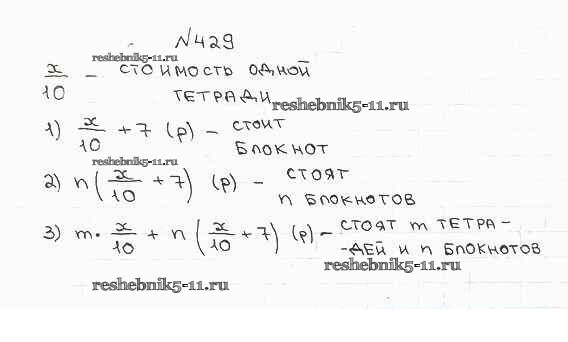 №429
reshebnik5-11.ru
x/10 – стоимость одной
тетради
reshebnik5-11.ru
1) x/10 + 7 (р) – стоит
блокнот
reshebnik5-11.ru
2) n(x/10 + 7) (р) – стоят
n блокнотов
3) m·x/10 + n(x/10 + 7) (р) – стоят m тетра-
-дей и n блокнотов
reshebnik5-11.ru
reshebnik5-11.ru